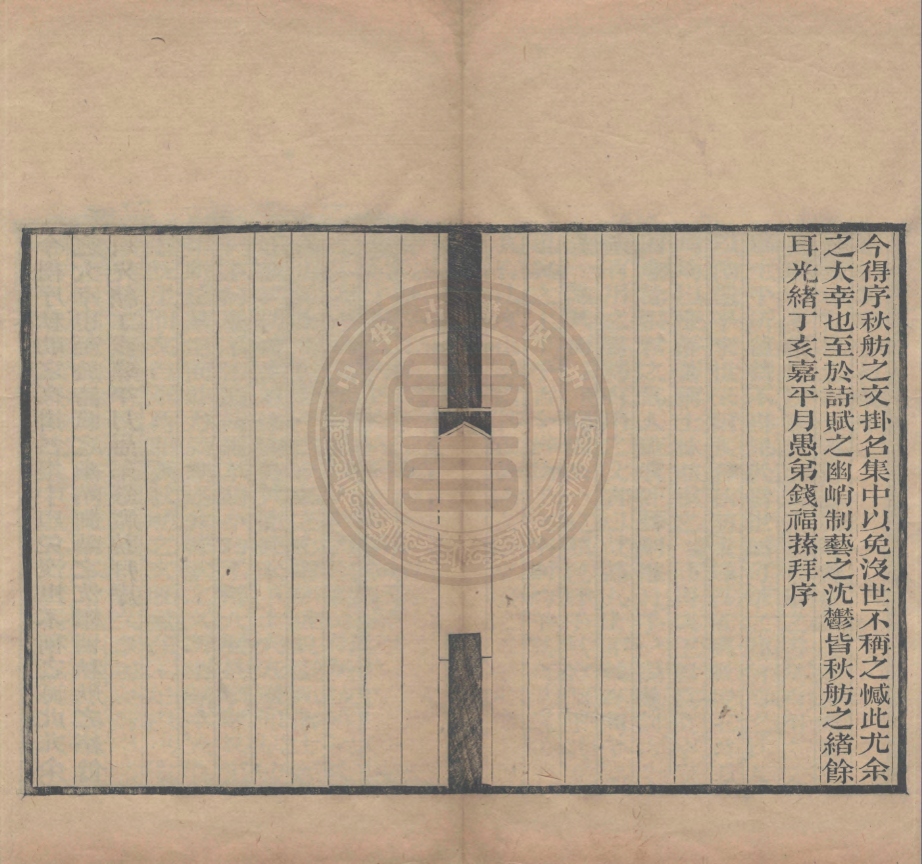 今得序秋舫之文掛名集中以免沒世不稱之憾此尤余
之大幸也至於詩賦之幽峭制藝之沈鬱皆秋舫之緒餘
耳光緒丁亥嘉平月愚弟錢福蓀拜序